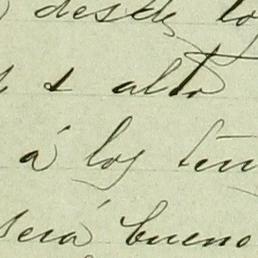 desde lo
s alto
á los ten
será bueno